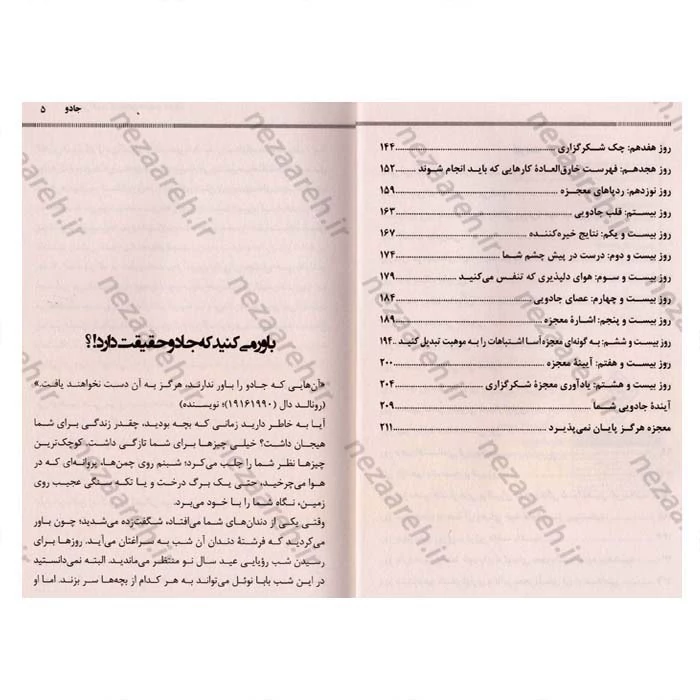 روز هفدهم: چک شکرگزاری ..... ۱۴۴
روز هجدهم: فهرست خارق‌العادهٔ کارهایی که باید انجام شوند ..... ۱۵۲
روز نوزدهم: ردپاهای معجزه ..... ۱۵۹
روز بیستم: قلب جادویی ..... ۱۶۳
روز بیست و یکم: نتایج خیره‌کننده ..... ۱۶۷
روز بیست و دوم: درست در پیش چشم شما ..... ۱۷۴
روز بیست و سوم: هوای دلپذیری که تنفس می‌کنید ..... ۱۷۹
روز بیست و چهارم: عصای جادویی ..... ۱۸۴
روز بیست و پنجم: اشارهٔ معجزه ..... ۱۸۹
روز بیست و ششم: به گونه‌ای معجزه آسا اشتباهات را به موهبت تبدیل کنید .. ۱۹۴
روز بیست و هفتم: آیینهٔ معجزه ..... ۲۰۰
روز بیست و هشتم: یادآوری معجزهٔ شکرگزاری ..... ۲۰۴
آیندهٔ جادویی شما ..... ۲۰۹
معجزه هرگز پایان نمی‌پذیرد ..... ۲۱۱
جادو ۵
باور می‌کنید که جادو حقیقت دارد!؟
«آن‌هایی که جادو را باور ندارند، هرگز به آن دست نخواهند یافت.»
(رونالد دال (۱۹۱۶۱۹۹۰)؛ نویسنده)
آیا به خاطر دارید زمانی که بچه بودید، چقدر زندگی برای شما
هیجان داشت؟ خیلی چیزها برای شما تازگی داشت. کوچک‌ترین
چیزها نظر شما را جلب می‌کرد؛ شبنم روی چمن‌ها، پروانه‌ای که در
هوا می‌چرخید، حتی یک برگ درخت و یا تکه سنگی عجیب روی
زمین، نگاه شما را با خود می‌برد.
وقتی یکی از دندان‌های شما می‌افتاد، شگفت‌زده می‌شدید؛ چون باور
می‌کردید که فرشتهٔ دندان آن شب به سراغتان می‌آید. روزها برای
رسیدن شب رؤیایی عید سال نو منتظر می‌ماندید. البته نمی‌دانستید
در این شب بابا نوئل می‌تواند به هر کدام از بچه‌ها سر بزند. اما او
nezaareh.ir
nezaareh.ir
nezaareh.ir
nezaareh.ir
nezaareh.ir
nezaareh.ir
nezaareh.ir
nezaareh.ir
nezaareh.ir